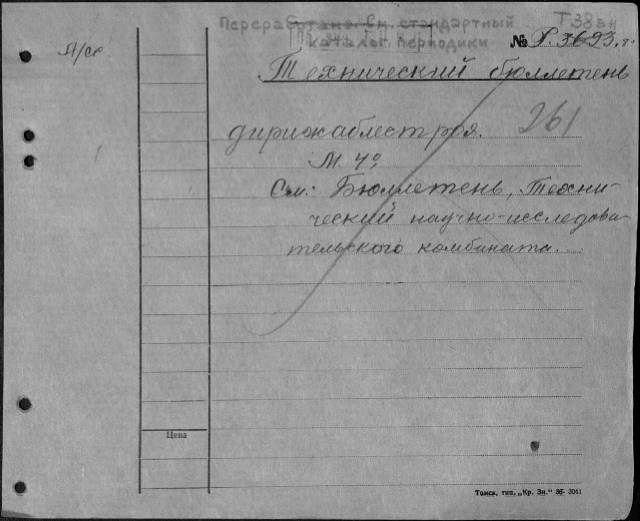 Переработано. См. стандартный
каталог периодики
Т38
№ Р.3693
Технический бюллетень
261
дирижаблестроя.
М. 4°
См.: Бюллетень, Техни-
ческий научно-исследова-
тельского комбината.
Цена
Томск. тип. „Кр. Зн." 36 3041